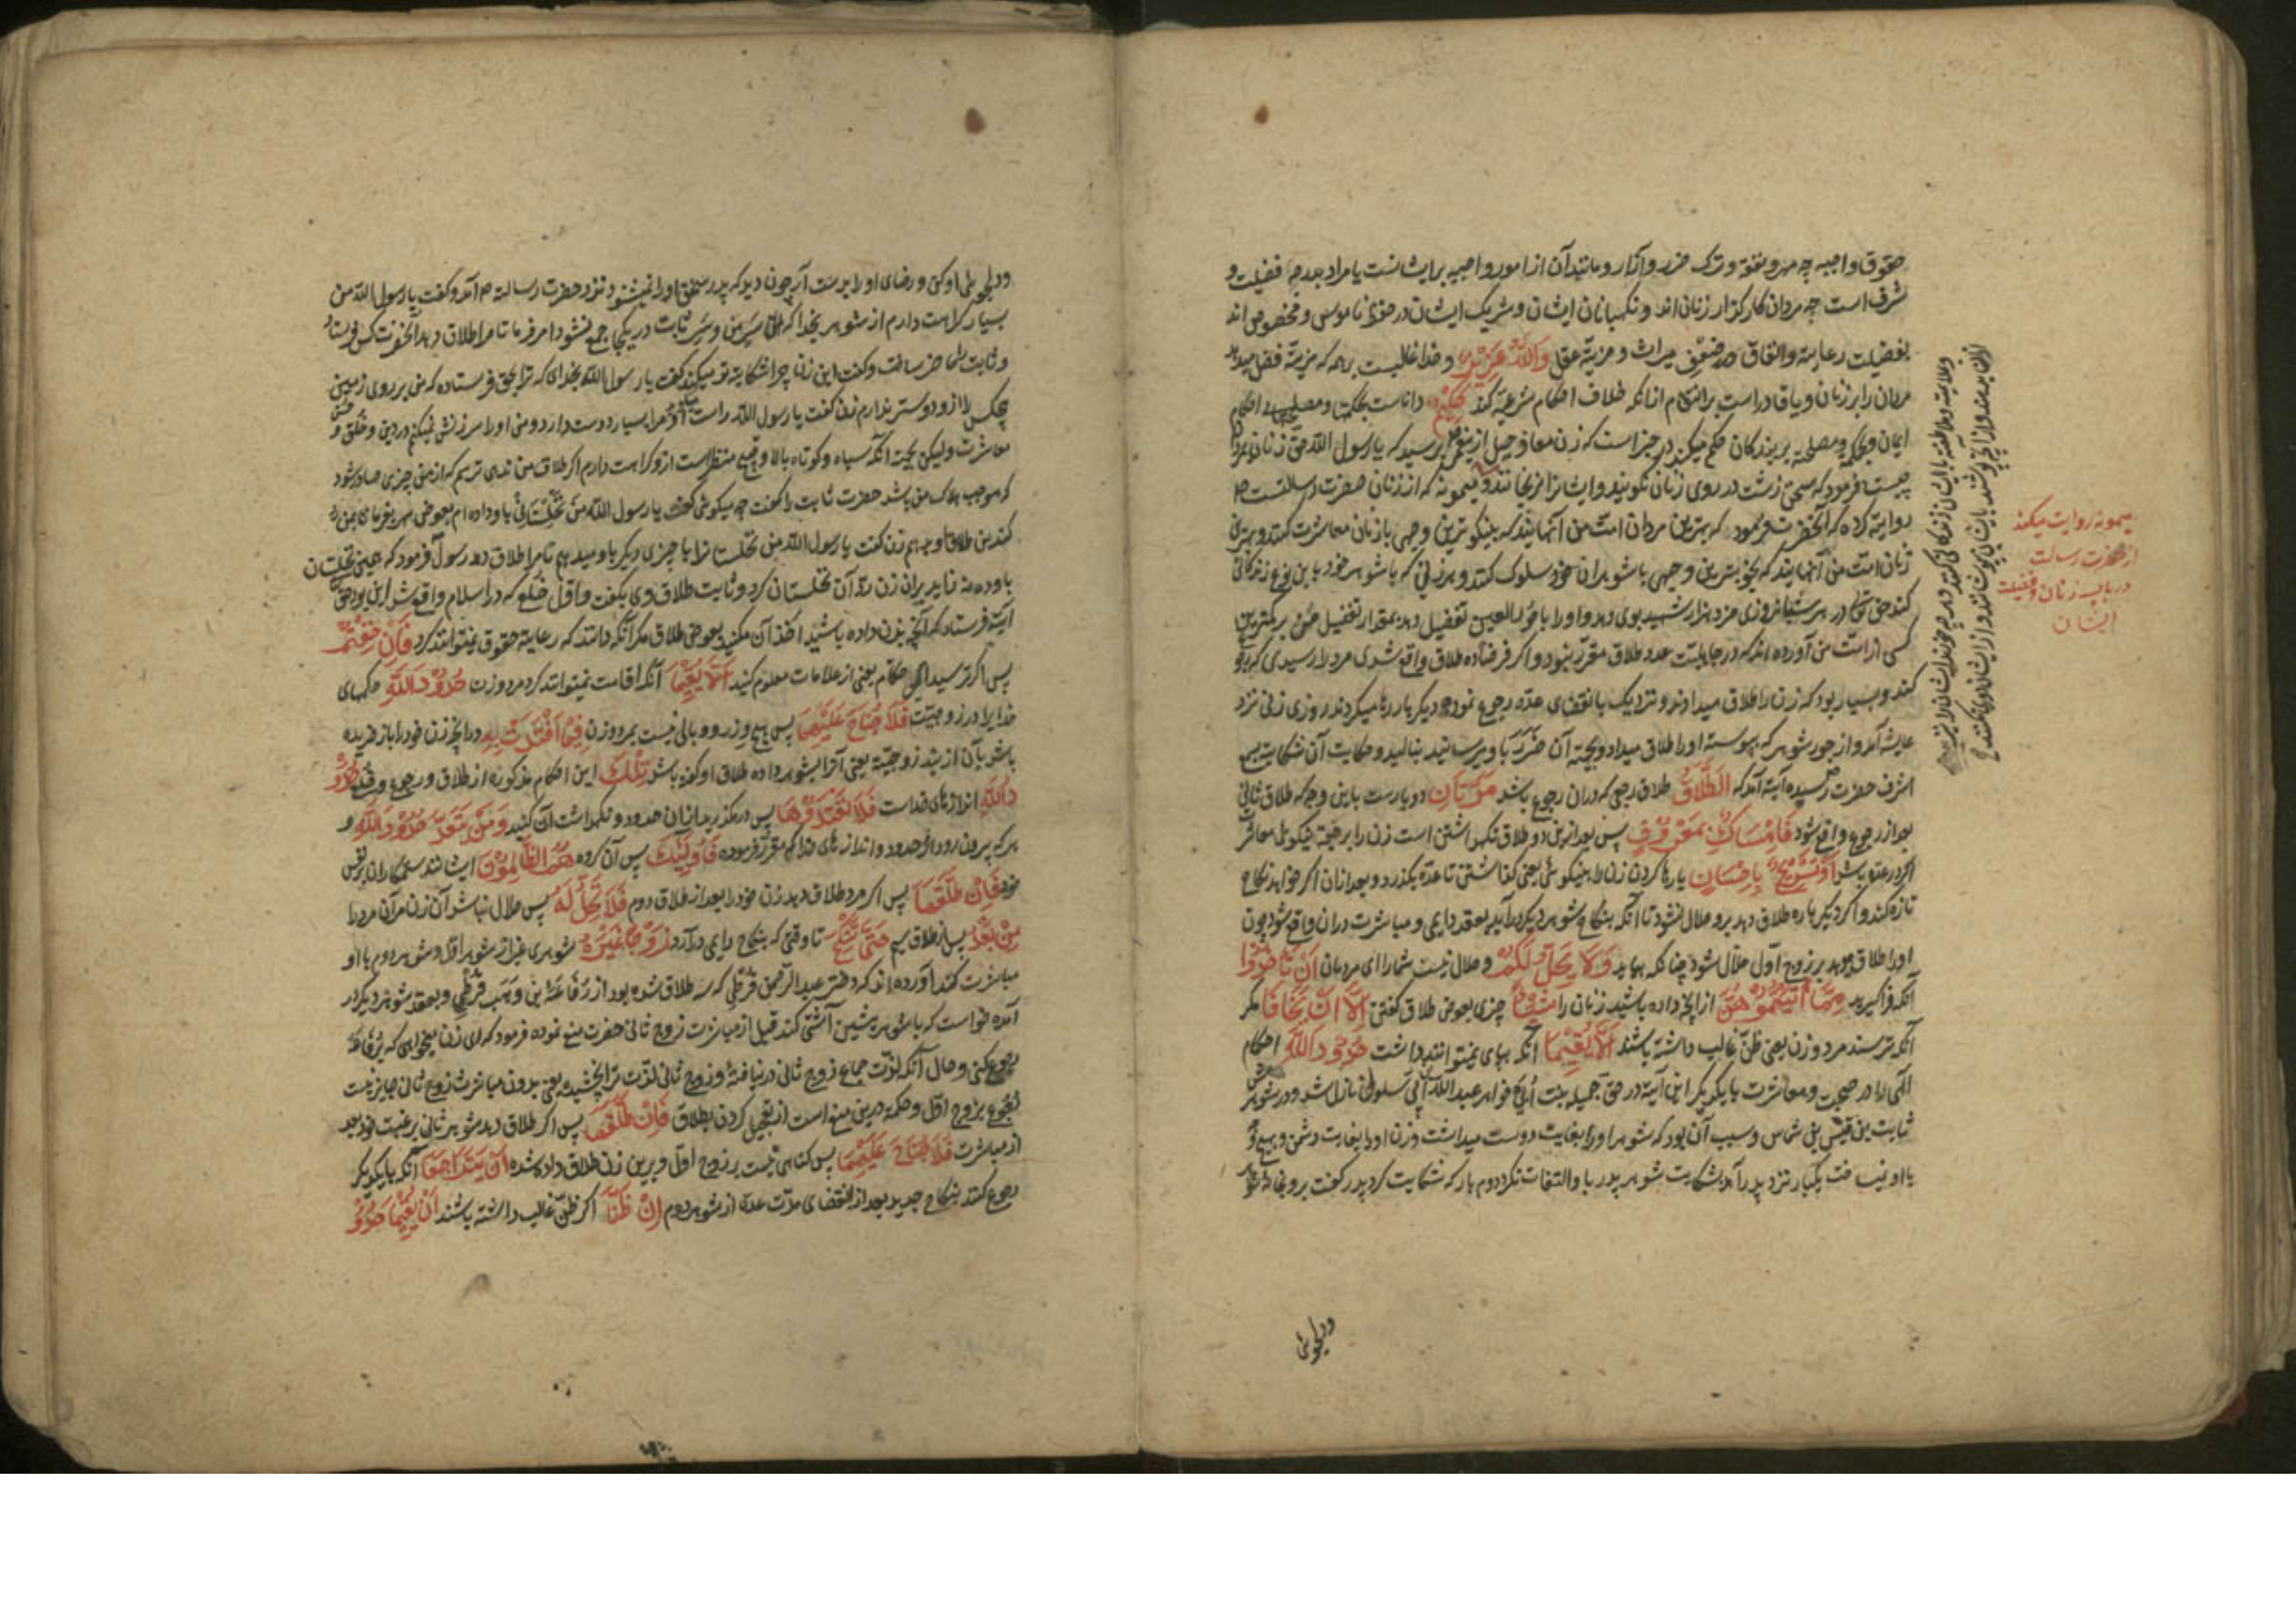 حقوق واجبه چه مهر و نفقه و ترک ضرر و آزار و مانند آن از امور واجبه بر ایشانست یا مراد بدرجه فضیلت و
شرف است چه مردان کارگزار زنان اند و نگهبانان ایشان و شریک ایشان در حفظ ناموس و مخصوص اند
بفضیلت رعایة و انفاق و ضعف میراث و مزیة عقل وَاللّٰهُ عَزِیْزٌ و خدا غالبست بر همه که مزیة فضل میدهد
مردان را بر زنان و یا قادر است بر انتقام از آنکه خلاف احکام شرعیه کند حَکِیْمٌ داناست بحکمتها و مصلحتها و احکام
ایشان و بحکمة و مصلحة بر بندگان حکم میکند در خبر است که زن معاذ جبل از پیغمبر پرسید که یا رسول الله حق زنان بر مردان
چیست فرمود که سخن زشت در روی زنان نگویند و ایشانرا نرنجانند و میمونه که از زنان حضرت رسالتست
روایة کرده که آنحضرت فرمود که بهترین مردان امت من آنهایند که بنیکوترین وجهی با زنان معاشرت کنند و بهترین
زنان امت من آنهایند که بخوبترین وجهی با شوهران خود سلوک کنند و هر زنی که با شوهر خود باین نوع زندگانی
کند حق تعالی در هر شبانروزی مزد هزار شهید بوی دهد و او را با حور العین تفضیل دهد بمقدار تفضیل من بر کمترین
کسی از امت من آورده اند که در جاهلیت عدد طلاق مقرر نبود و اگر فرضا ده طلاق واقع شدی مرد را رسیدی که رجوع
کند و بسیار بود که زن را طلاق میدادند و نزدیک بانقضای عده رجوع نموده دیگر بار رها میکردند روزی زنی نزد
عایشه آمد و از جور شوهر که پیوسته او را طلاق میداد و بجهة آن ضرر باو میرسانید بنالید و حکایت آن شکایت بسمع
اشرف حضرت رسیده آیة آمد که الطَّلَاقُ طلاق رجعی که در آن رجوع باشد مَرَّتَانِ دو بارست باین وجه که طلاق ثانی
بعد از رجوع واقع شود فَاِمْسَاکٌ بِمَعْرُوْفٍ پس بعد ازین دو طلاق نگهداشتن است زن را برجعة بنیکوئی معاشرت
اگر در عده باشد اَوْ تَسْرِیْحٌ بِاِحْسَانٍ یا رها کردن زنان بنیکوئی یعنی گذاشتن تا عده بگذرد و بعد از آن اگر خواهد نکاح
تازه کند و اگر دیگر باره طلاق دهد برو حلال نشود تا آنکه بنکاح شوهر دیگر درآید بعقد دایمی و مباشرت در آن واقع شود چون
او را طلاق دهد بر زوج اول حلال شود چنانکه بیاید وَلَا یَحِلُّ لَکُمْ و حلال نیست شما را ای مردمان اَنْ تَأْخُذُوا
آنکه فراگیرید مِمَّا اٰتَیْتُمُوْهُنَّ از آنچه داده باشید زنان را شَیْئًا چیزی بعوض طلاق گفتن اِلَّا اَنْ یَخَافَا مگر
آنکه ترسند مرد و زن یعنی ظن غالب داشته باشند اَلَّا یُقِیْمَا آنکه بپای نمیتوانند داشت حُدُوْدَ اللّٰهِ احکام
الهی را در صحبت و معاشرت با یکدیگر این آیة در حق جمیله بنت اُبَیّ خواهر عبدالله ابن اُبَیّ سلول نازل شد و در شوهرش
ثابت بن قیس بن شماس و سبب آن بود که شوهر او را بغایت دوست میداشت و زن او را بغایت دشمن و بهیچ وجه
با او نمیساخت یکبار نزد پدر آمد بشکایت شوهر پدر باو التفات نکرد دوم بار که شکایت کرد پدر گفت برو بخانه شوهر
ودلجوئی
میمونه روایت میکند
از حضرت رسالت
در باب زنان و فضیلت
ایشان
ودلجوئی او کن و رضای او را بدست آر چون دید که پدر سخن او را نمیشنود نزد حضرت رسالة آمد و گفت یا رسول الله من
بسیار کراهت دارم از شوهر بخدا که سر من و سر ثابت در یکجا جمع نشود امر فرما تا مرا طلاق دهد آنحضرت کس فرستاد
و ثابت حاضر ساخت و گفت این زن چرا شکایة تو میکند گفت یا رسول الله بخدای که ترا بحق فرستاده که من بر روی زمین
هیچکس را ازو دوستر ندارم زن گفت یا رسول الله راست گفت او مرا بسیار دوست دارد و من او را سرزنش نمیکنم در دین و خلق و حسن
معاشرت ولیکن بجهة آنکه سیاه و کوتاه بالا و قبیح منظر است ازو کراهت دارم اگر طلاق من ندهی ترسم که از من چیزی صادر شود
که موجب هلاک من باشد حضرت ثابت را گفت چه میگوئی گفت یا رسول الله من نخلستانی باو داده ام بعوض مهر بفرمای بمن رد
کند من طلاق او بدهم زن گفت یا رسول الله من نخلستانرا با چیزی دیگر باو میدهم تا مرا طلاق دهد رسول فرمود که همین نخلستان
باو ده نه زاید بر آن زن رد آن نخلستان کرد و ثابت طلاق وی بگفت و اول خلع که در اسلام واقع شد این بود حق تعالی
آیة فرستاد که آنچه بزن داده باشید اخذ آن مکنید بعوض طلاق مگر آنکه دانند که رعایة حقوق نمیتوانند کرد فَاِنْ خِفْتُمْ
پس اگر ترسید ای حکام یعنی از علامات معلوم کنید اَلَّا یُقِیْمَا آنکه اقامت نمیتوانند کرد مرد و زن حُدُوْدَ اللّٰهِ حکمهای
خدایرا در زوجیت فَلَا جُنَاحَ عَلَیْهِمَا پس هیچ وزر و وبالی نیست بمرد و زن فِیْمَا افْتَدَتْ بِهِ در آنچه زن خود را باز خریده
باشد بآن از بند زوجیة یعنی آنرا بشوهر داده طلاق او گفته باشد تِلْکَ این احکام مذکوره از طلاق و رجوع و خلع حُدُوْ
دُ اللّٰهِ اندازهای خداست فَلَا تَعْتَدُوْهَا پس درمگذرید از آن حدود و نگهداشت آن کنید وَ مَنْ یَتَعَدَّ حُدُوْدَ اللّٰهِ و
هر که بیرون رود از حدود و اندازهای خدا که مقرر فرموده فَاُولٰئِکَ پس آن گروه هُمُ الظَّالِمُوْنَ ایشانند ستمکاران بر نفس
خود فَاِنْ طَلَّقَهَا پس اگر مرد طلاق دهد زن خود را بعد از طلاق دوم فَلَا تَحِلُّ لَهُ پس حلال نباشد آن زن مر آن مرد را
مِنْ بَعْدُ پس از طلاق سیم حَتّٰی تَنْکِحَ تا وقتی که بنکاح دایمی درآرد زَوْجًا غَیْرَهُ شوهری غیر از شوهر اول و شوهر دوم با او
مباشرت کند آورده اند که دختر عبدالرحمن قرظی که سه طلاق شده بود از رفاعة ابن وهب قرظی و بعقد شوهر دیگر در
آمده خواست که با شوهر پیشین آشتی کند قبل از مباشرت زوج ثانی حضرت منع نموده فرمود که ای زن میخواهی که برفاعه
رجوع کنی و حال آنکه لذت جماع زوج ثانی در نیافتة و زوج ثانی لذت ترا نچشیده یعنی بدون مباشرت زوج ثانی جایز نیست
رجوع بزوج اول و حکمة درین منع است از تعجیل کردن بطلاق فَاِنْ طَلَّقَهَا پس اگر طلاق دهد شوهر ثانی برغبت خود بعد
از مباشرت فَلَا جُنَاحَ عَلَیْهِمَا پس گناهی نیست بر زوج اول و برین زن طلاق داده شده اَنْ یَتَرَاجَعَا آنکه با یکدیگر
رجوع کنند بنکاح جدید بعد از انقضای مدت عده از شوهر دوم اِنْ ظَنَّا اگر ظن غالب داشته باشند اَنْ یُقِیْمَا حُدُوْ